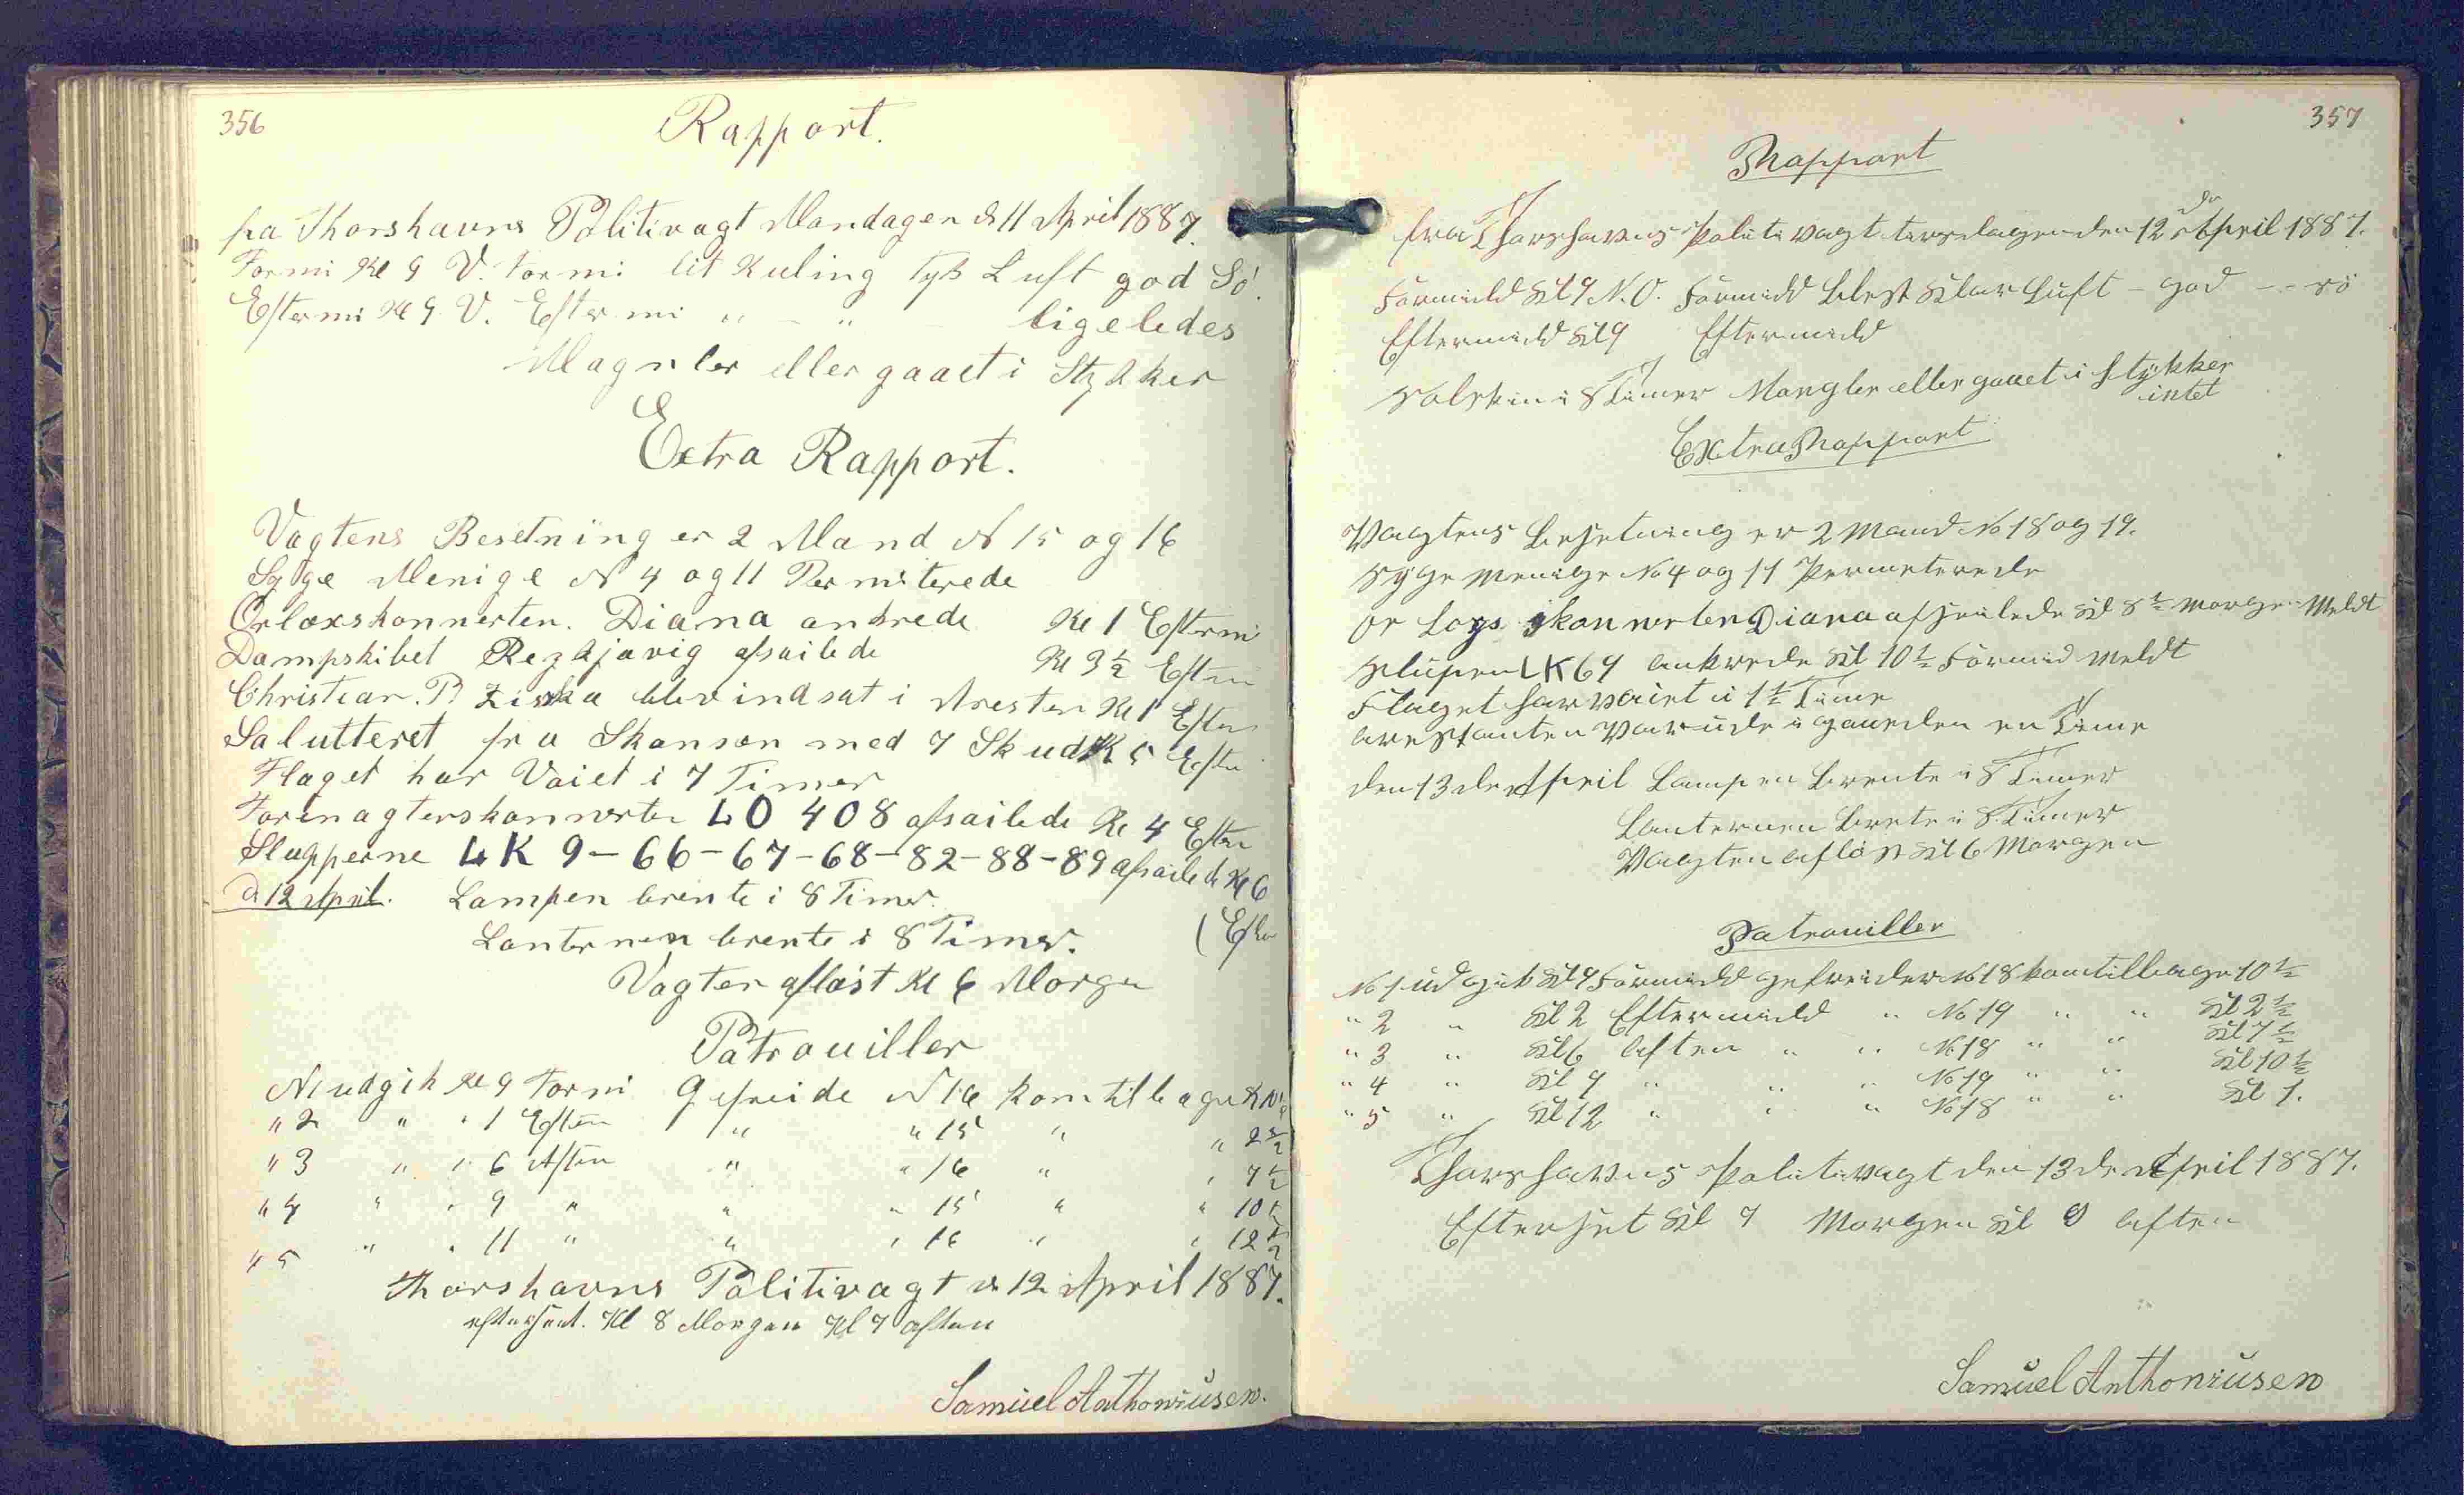 356
Rapport.
fra Thorshavns Politivagt Mandagen d 11 April 1887.
Formi Kl 9 V. Formi lit Kuling Tyk Luft god Sö.
Eftermi Kl 9 V. Eftermi " - " - ligeledes
Magnler eller gaaet i Stykker
Extra Rapport.
Vagtens Besetning er 2 Mand N 15 og 16
Syge Menige N 4 og 11 Permiterede
Orloxskonnerten. Diana ankrede Kl 1 Eftermi
Dampskibet Reykjavig afsailede Kl 3 1/2 Eftm
Christian. P. Ziska blev indsat i Arresten Kl 1 Eftm
Salutteret fra Skansen med 7 Skud K 5 Eftm
Flaget har Vaiet i 7 Timer
Forenagterskonnerten LO 408 afsailede Kl 4 Eftm
Slupperne LK 9-66-67-68-82-88-89 afsailede Kl 6
(Eftm
d 12 April. Lampen brente i 8 Timer.
Lanternen brente i 8 Timer.
Vagten aflöst Kl 6 Morgen
Patrouiller
N1 udgik Kl 9 Formi Gefreide N 16 kom tilbage K 10 1/2
" 2 " " 1 Eftm " " 15 " " 2 1/2
" 3 " " 6 Aften " " 16 " " 7 1/2
" 4 " " 9 " " " 15 " " 10 1/2
" 5 " " 11 " " " 16 " " 12 1/2
Thorshavns Politivagt d 12 April 1887.
efterseet. Kl 8 Morgen Kl 7 aften
Samuel Anthoniusen.
357
Rapport
fra Thorshavns Politivagt tirsdagen den 12 de April 1887.
Formidd Kl 9 N.O. Formidd Blest Klar Luft - god - - sö
Eftermidd Kl 9 Eftermidd
Solskin i 8 Timer Mangler eller gaaet i Stykker
intet
Extra Rapport
Vagtens Besetning er 2 Mand No 18 og 19.
Syge Menige No 4 og 11 Permeterede
Or Logs skonnerten Diana afseilede Kl 8 1/2 Morgen Meldt
Slupen LK 69 ankrede Kl 10 1/2 Formid Meldt
Flaget har vaiet i 1 1/2 Time
Arestanten Var ude i gaarden en Time
den 13 de April Lampen brente i 8 Timer
Lanternen brente i 8 Timer
Vagten aflöst Kl 6 Morgen
Patrouiller
No 1 udgik Kl 9 Formidd gefreider No 18 kom tilbage 10 1/2
" 2 " Kl 2 Eftermidd " No 19 " " Kl 2 1/2
" 3 " Kl 6 aften " " No 18 " " Kl 7 1/2
" 4 " Kl 9 " " " No 19 " " Kl 10 1/2
" 5 " Kl 12 " " " No 18 " " Kl 1.
Thorshavns Politivagt den 13 de April 1887.
Efterset Kl 7 Morgen Kl 9 aften
Samuel Anthoniusen